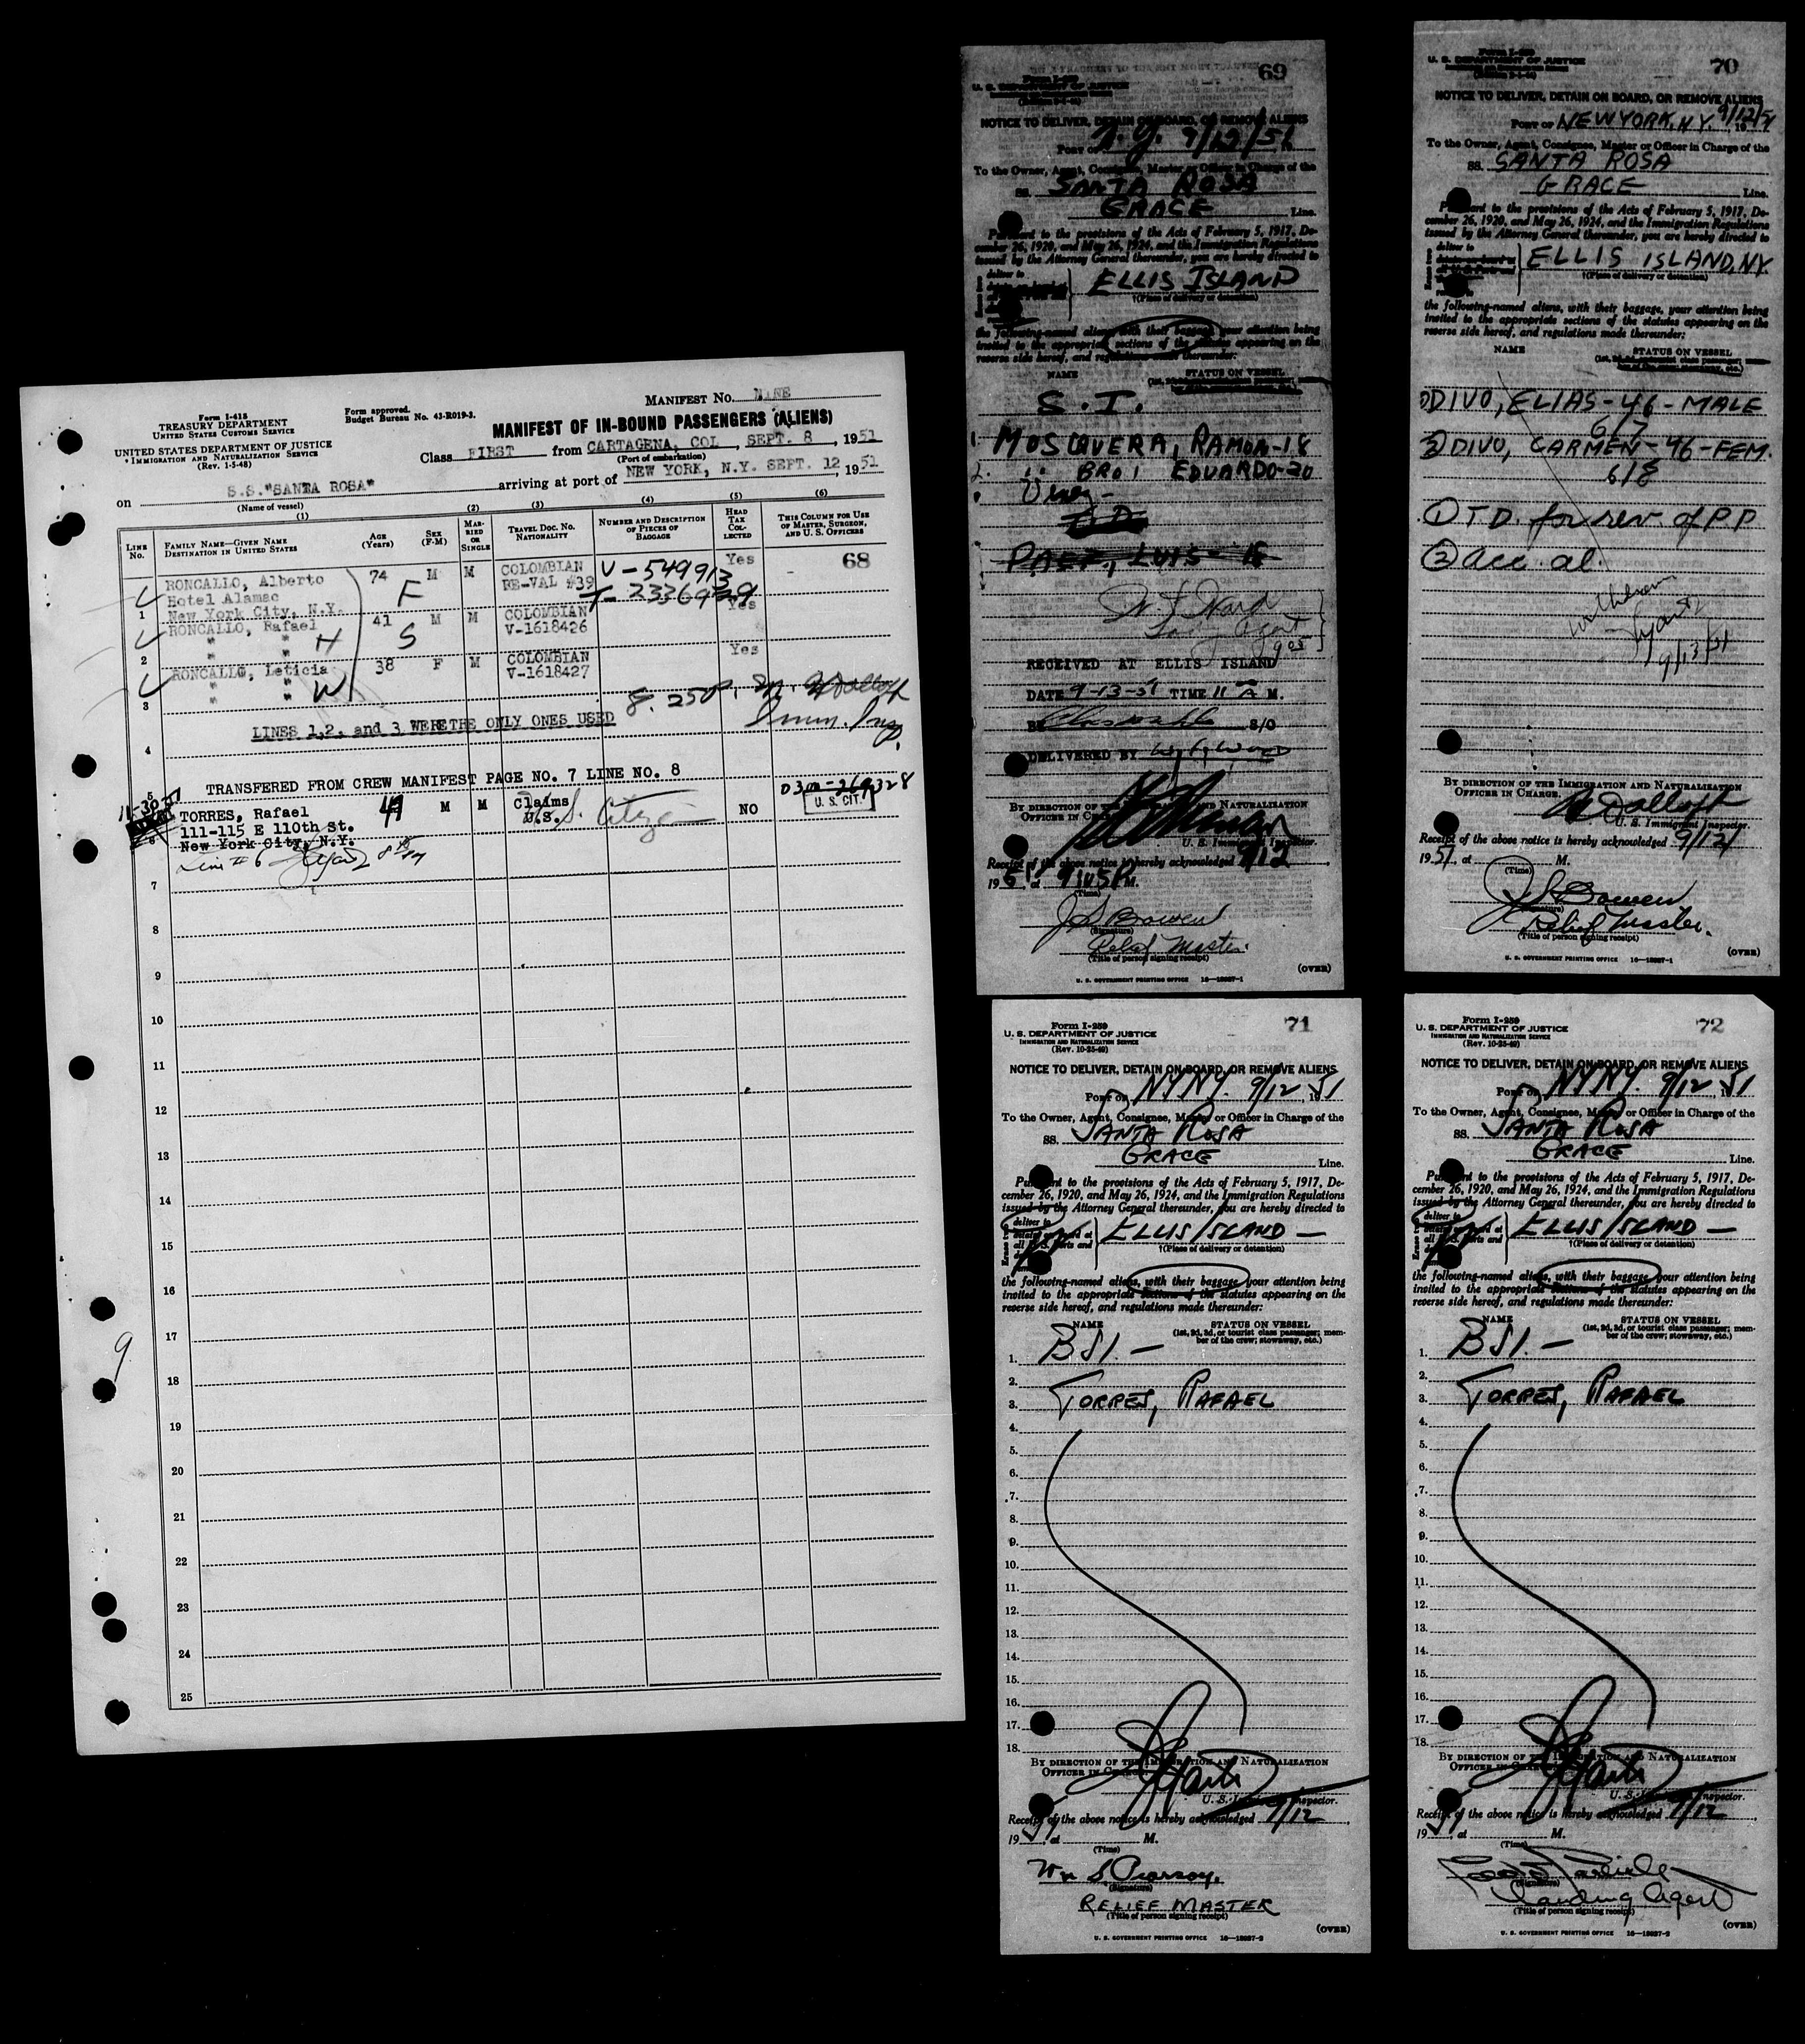 MANIFEST NO. NINE
Form I-418
TREASURY DEPARTMENT
UNITED STATES CUSTOMS SERVICE
UNITED STATES DEPARTMENT OF JUSTICE
IMMIGRATION AND NATURALIZATION SERVICE
(Rev. 1-5-48)
Form approved.
Budget Bureau No. 43-R019-3.
MANIFEST OF IN-BOUND PASSENGERS (ALIENS)
Class FIRST from CARTAGENA, COL, SEPT. 8, 1951
(Port of embarkation)
on S.S."SANTA ROSA" arriving at port of NEW YORK, N.Y. SEPT. 12 1951
(Name of vessel)
(1) (2) (3) (4) (5) (6)
LINE No.
FAMILY NAME—GIVEN NAME
DESTINATION IN UNITED STATES
AGE (Years)
SEX (F-M)
MARRIED OR SINGLE
TRAVEL DOC. NO. NATIONALITY
NUMBER AND DESCRIPTION OF PIECES OF BAGGAGE
HEAD TAX COLLECTED
THIS COLUMN FOR USE OF MASTER, SURGEON, AND U. S. OFFICERS
68
RONCALLO, Alberto 74 M M COLOMBIAN V-549913 Yes
Hotel Alamac F RE-VAL #39
1 New York City, N.Y.
RONCALLO, Rafael 41 M M COLOMBIAN Yes
" H S V-1618426
2 "
RONCALLO, Leticia 38 F M COLOMBIAN Yes
" W V-1618427
3 "
LINES 1,2, and 3 WERE THE ONLY ONES USED
4
5 TRANSFERED FROM CREW MANIFEST PAGE NO. 7 LINE NO. 8
TORRES, Rafael M M Claims NO
111-115 E 110th St. U.S. Citizen U. S. CIT.
6 New York City, N.Y.
Line # 6
7
8
9
10
11
12
13
14
15
16
17
18
19
20
21
22
23
24
25
9
69
Form I-259
U. S. DEPARTMENT OF JUSTICE
NOTICE TO DELIVER, DETAIN ON BOARD, OR REMOVE ALIENS
PORT OF N.Y. 9/12/51
To the Owner, Agent, Consignee, Master or Officer in Charge of the
SS. SANTA ROSA
GRACE Line.
Pursuant to the provisions of the Acts of February 5, 1917, December 26, 1920, and May 26, 1924, and the Immigration Regulations
issued by the Attorney General thereunder, you are hereby directed to
deliver to ELLIS ISLAND
†(Place of delivery or detention)
the following-named aliens, with their baggage, your attention being
invited to the appropriate sections of the statutes appearing on the
reverse side hereof, and regulations made thereunder:
NAME STATUS ON VESSEL
S.I.
1. MOSQUERA, RAMON-18
2. " BRO, EDUARDO-20
PAEZ, LUIS
RECEIVED AT ELLIS ISLAND
DATE 9-13-51 TIME 11 A M.
BY S/O
DELIVERED BY W. F. Ward
BY DIRECTION OF THE IMMIGRATION AND NATURALIZATION
OFFICER IN CHARGE
U. S. Immigrant Inspector.
Receipt of the above notice is hereby acknowledged 9/12
1951, at 9:05 P M.
(Time)
J S Bowen
(Signature)
Relief Master.
(Title of person signing receipt)
(OVER)
U. S. GOVERNMENT PRINTING OFFICE 16—18327-1
70
Form I-259
U. S. DEPARTMENT OF JUSTICE
NOTICE TO DELIVER, DETAIN ON BOARD, OR REMOVE ALIENS
PORT OF NEW YORK, N.Y. 9/12/51
To the Owner, Agent, Consignee, Master or Officer in Charge of the
SS. SANTA ROSA
GRACE Line.
Pursuant to the provisions of the Acts of February 5, 1917, December 26, 1920, and May 26, 1924, and the Immigration Regulations
issued by the Attorney General thereunder, you are hereby directed to
deliver to ELLIS ISLAND, NY.
†(Place of delivery or detention)
the following-named aliens, with their baggage, your attention being
invited to the appropriate sections of the statutes appearing on the
reverse side hereof, and regulations made thereunder:
NAME STATUS ON VESSEL
① DIVO, ELIAS-46-MALE
6/7
② DIVO, CARMEN-46-FEM.
6/8
① T D. for rev. of PP
② acc. al.
9/13/51
BY DIRECTION OF THE IMMIGRATION AND NATURALIZATION
OFFICER IN CHARGE
U. S. Immigrant Inspector.
Receipt of the above notice is hereby acknowledged 9/12
1951, at M.
(Time)
J S Bowen
(Signature)
Relief Master.
(Title of person signing receipt)
(OVER)
U. S. GOVERNMENT PRINTING OFFICE 16—18327-1
71
Form I-259
U. S. DEPARTMENT OF JUSTICE
IMMIGRATION AND NATURALIZATION SERVICE
(Rev. 10-25-49)
NOTICE TO DELIVER, DETAIN ON BOARD, OR REMOVE ALIENS
PORT OF NYNY. 9/12, 1951
To the Owner, Agent, Consignee, Master or Officer in Charge of the
SS. SANTA ROSA
GRACE Line.
Pursuant to the provisions of the Acts of February 5, 1917, December 26, 1920, and May 26, 1924, and the Immigration Regulations
issued by the Attorney General thereunder, you are hereby directed to
deliver to ELLIS ISLAND —
†(Place of delivery or detention)
the following-named aliens, with their baggage, your attention being
invited to the appropriate sections of the statutes appearing on the
reverse side hereof, and regulations made thereunder:
NAME STATUS ON VESSEL
(1st, 2d, 3d, or tourist class passenger; member of the crew; stowaway, etc.)
1. BSI. —
2.
3. TORRES, RAFAEL
4.
5.
6.
7.
8.
9.
10.
11.
12.
13.
14.
15.
16.
17.
18.
BY DIRECTION OF THE IMMIGRATION AND NATURALIZATION
OFFICER IN CHARGE
U. S. Immigrant Inspector.
Receipt of the above notice is hereby acknowledged 9/12
1951, at M.
(Time)
Wm S Pearsoy.
(Signature)
RELIEF MASTER
(Title of person signing receipt)
(OVER)
U. S. GOVERNMENT PRINTING OFFICE 16—18327-2
72
Form I-259
U. S. DEPARTMENT OF JUSTICE
IMMIGRATION AND NATURALIZATION SERVICE
(Rev. 10-25-49)
NOTICE TO DELIVER, DETAIN ON BOARD, OR REMOVE ALIENS
PORT OF NYNY. 9/12, 1951
To the Owner, Agent, Consignee, Master or Officer in Charge of the
SS. SANTA ROSA
GRACE Line.
Pursuant to the provisions of the Acts of February 5, 1917, December 26, 1920, and May 26, 1924, and the Immigration Regulations
issued by the Attorney General thereunder, you are hereby directed to
deliver to ELLIS ISLAND —
†(Place of delivery or detention)
the following-named aliens, with their baggage, your attention being
invited to the appropriate sections of the statutes appearing on the
reverse side hereof, and regulations made thereunder:
NAME STATUS ON VESSEL
(1st, 2d, 3d, or tourist class passenger; member of the crew; stowaway, etc.)
1. BSI. —
2.
3. TORRES, RAFAEL
4.
5.
6.
7.
8.
9.
10.
11.
12.
13.
14.
15.
16.
17.
18.
BY DIRECTION OF THE IMMIGRATION AND NATURALIZATION
OFFICER IN CHARGE
U. S. Immigrant Inspector.
Receipt of the above notice is hereby acknowledged 9/12
1951, at M.
(Time)
(Signature)
Landing Agent
(Title of person signing receipt)
(OVER)
U. S. GOVERNMENT PRINTING OFFICE 16—18327-2